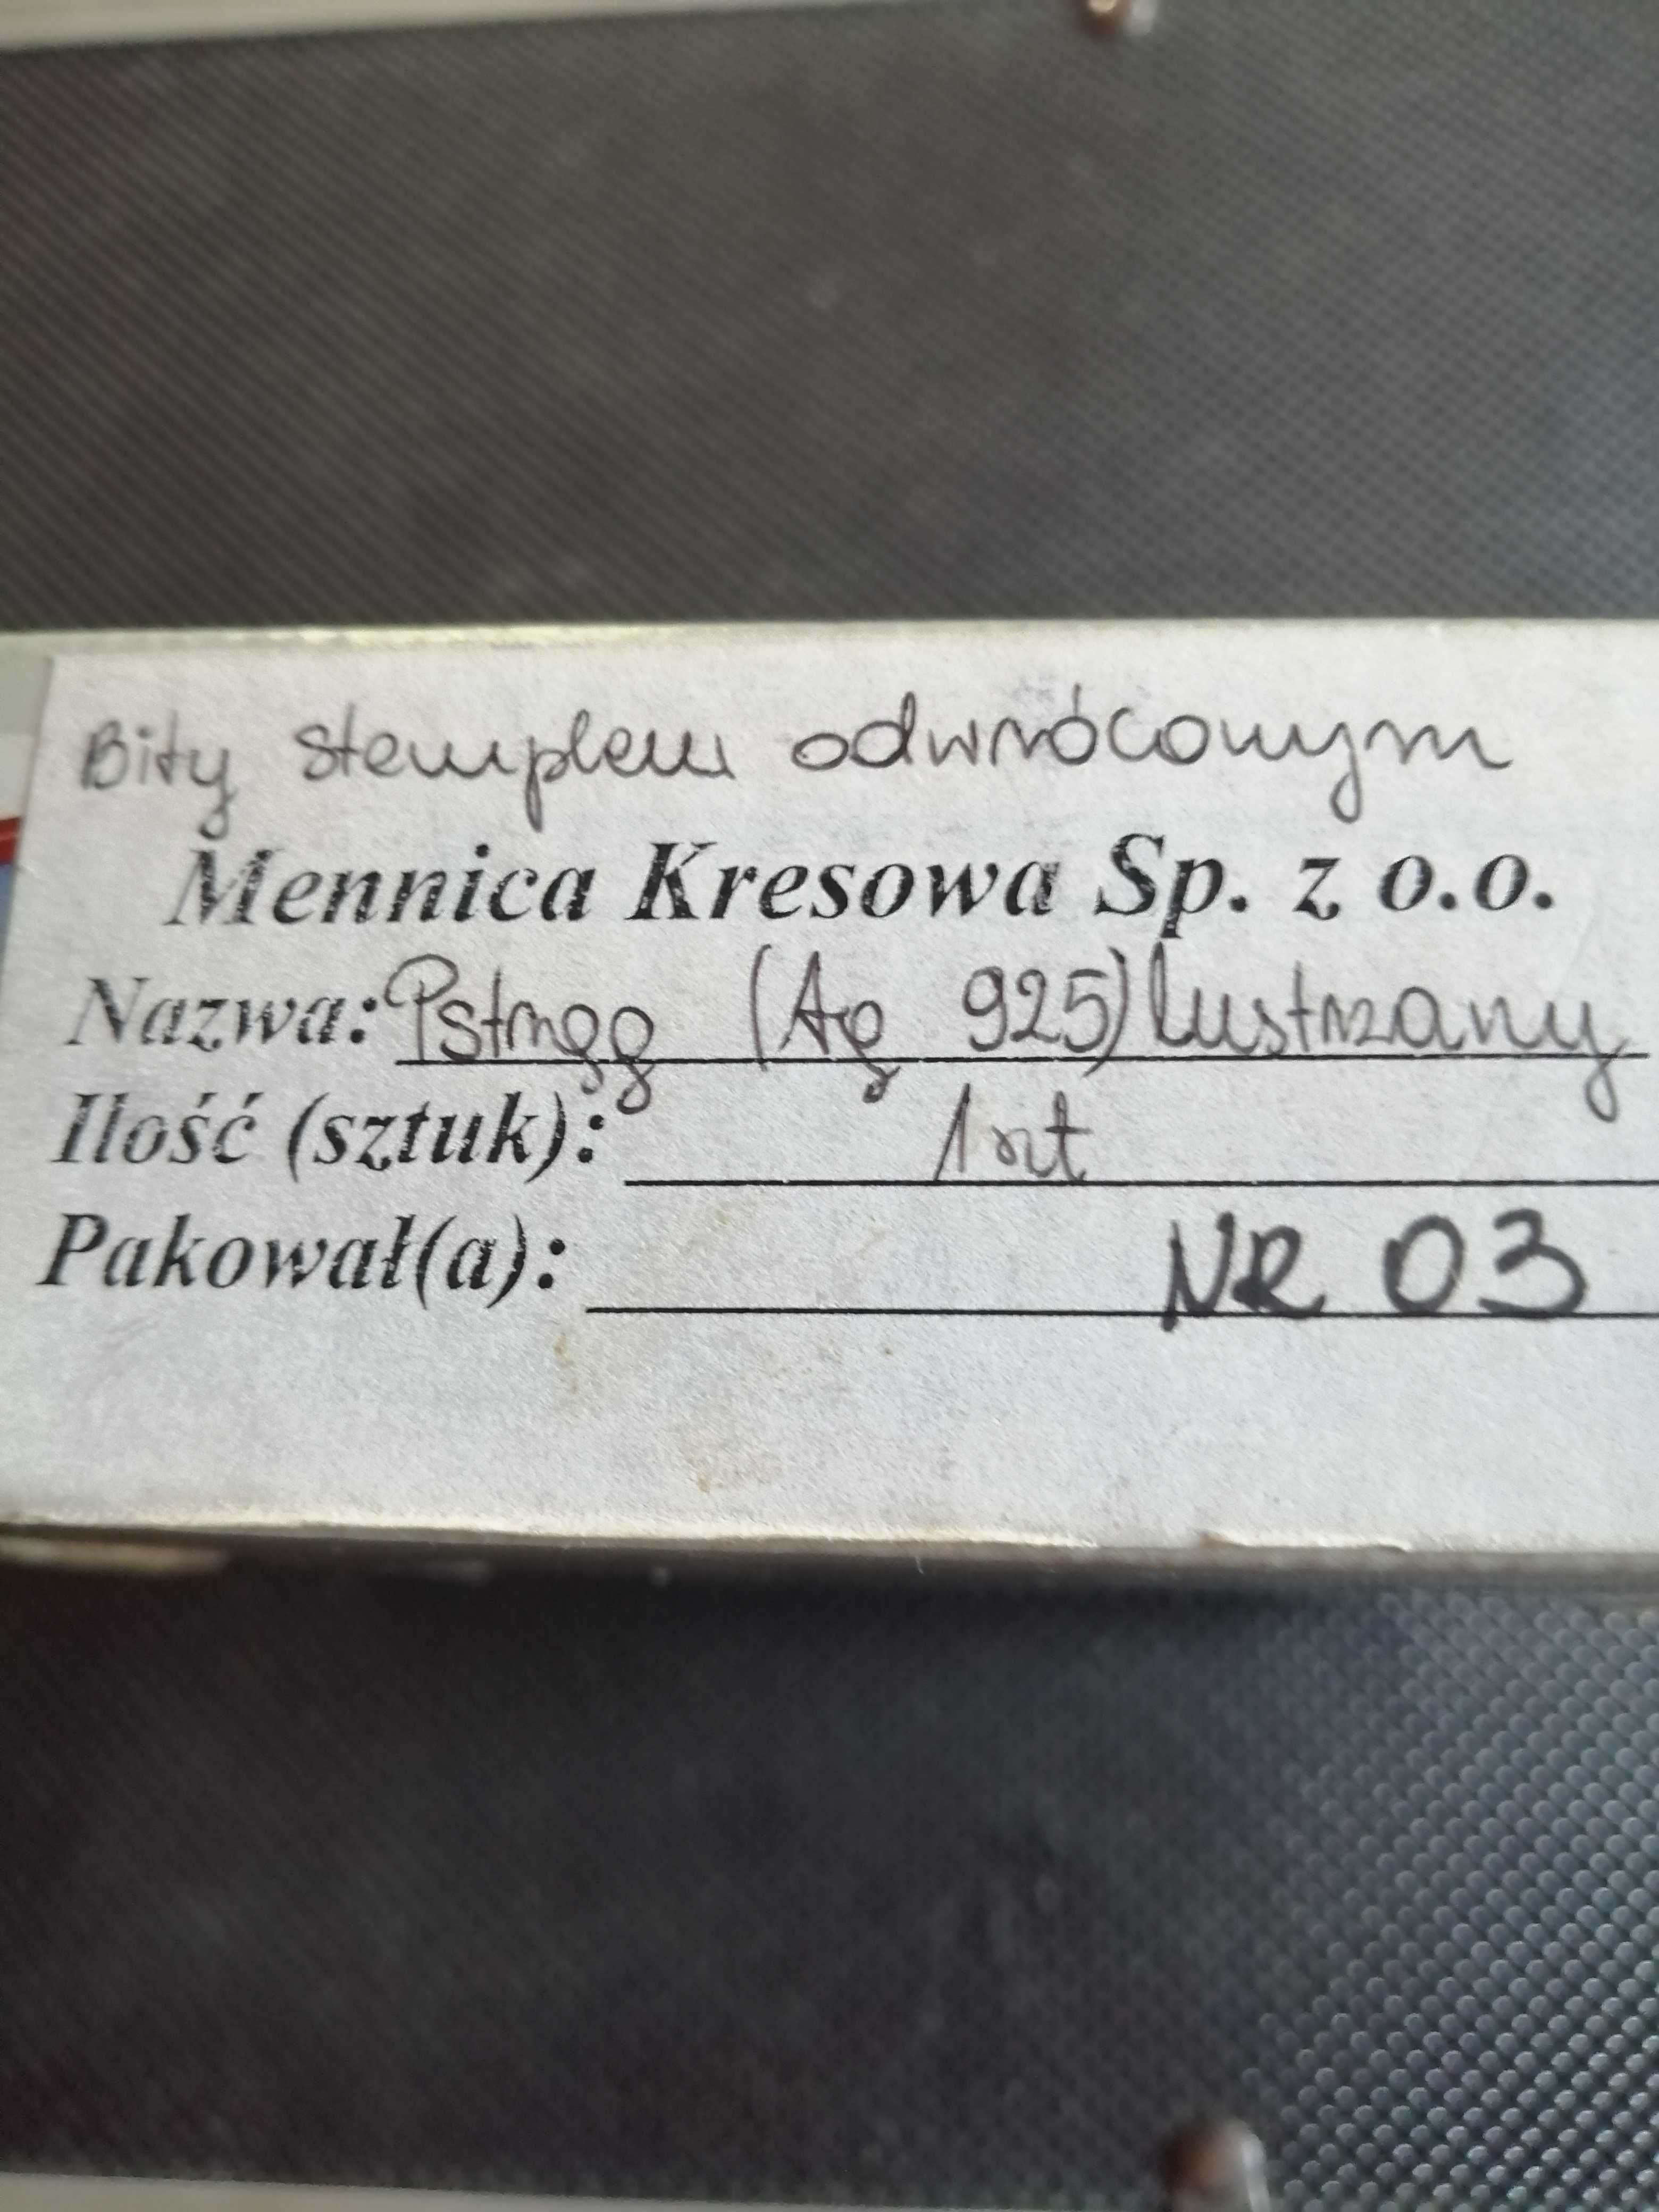 Bity stemplem odwróconym
Mennica Kresowa Sp. z o.o.
Nazwa: Pstrąg (Ag 925) lustrzany
Ilość (sztuk): 1 szt
Pakował(a): NR 03